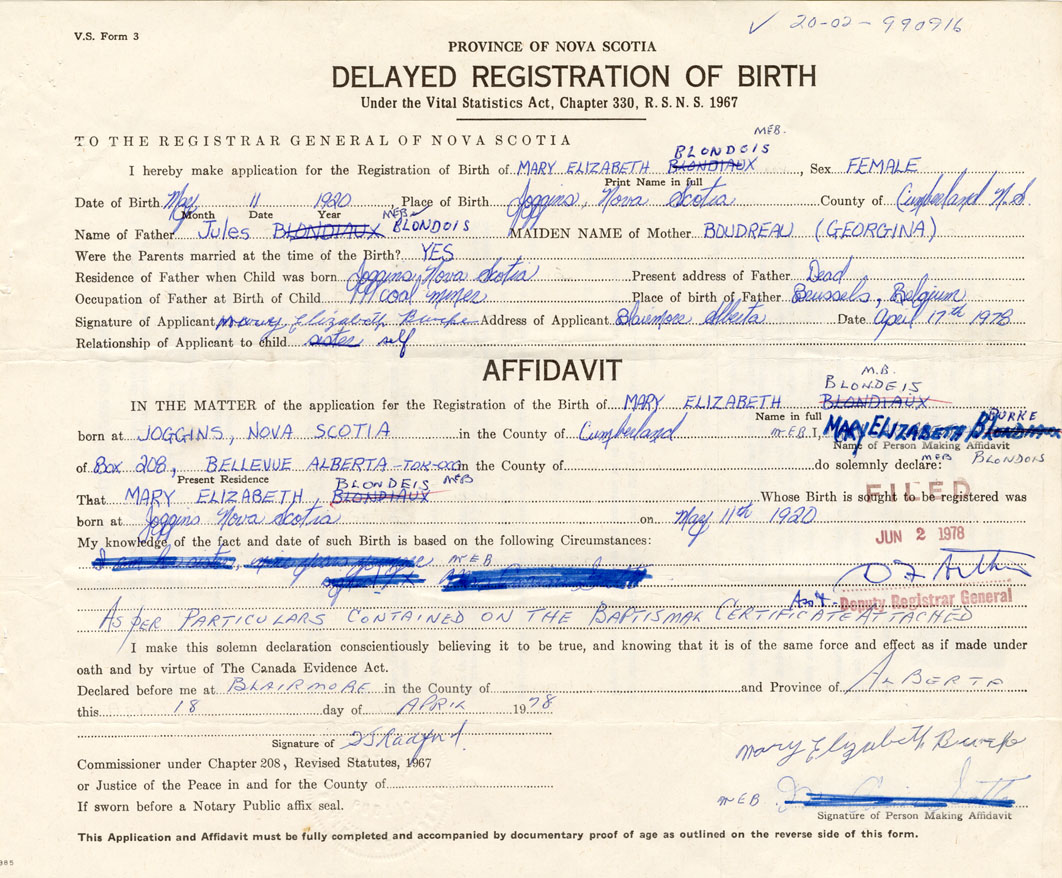 V.S. Form 3
✓ 20-02-990916
PROVINCE OF NOVA SCOTIA
DELAYED REGISTRATION OF BIRTH
Under the Vital Statistics Act, Chapter 330, R.S.N.S. 1967
TO THE REGISTRAR GENERAL OF NOVA SCOTIA
MEB.
BLONDOIS
I hereby make application for the Registration of Birth of MARY ELIZABETH BLONDIAUX, Sex FEMALE
Print Name in full
Date of Birth May 11 1920, Place of Birth Joggins, Nova Scotia County of Cumberland N.S.
Month Date Year
MEB
Name of Father Jules BLONDIAUX BLONDOIS MAIDEN NAME of Mother BOUDREAU (GEORGINA)
Were the Parents married at the time of the Birth? YES
Residence of Father when Child was born Joggins, Nova Scotia Present address of Father Dead
Occupation of Father at Birth of Child coal miner Place of birth of Father Beussels, Belgium
Signature of Applicant Mary Elizabeth Burke Address of Applicant Blairmore Alberta Date April 17th 1978
Relationship of Applicant to child sister self
AFFIDAVIT
M.B.
BLONDEIS
IN THE MATTER of the application for the Registration of the Birth of MARY ELIZABETH BLONDIAUX
Name in full
BURKE
born at JOGGINS, NOVA SCOTIA in the County of Cumberland MEB I, MARY ELIZABETH
Name of Person Making Affidavit
of Box 208, BELLEVUE ALBERTA - TOK-OCO in the County of do solemnly declare: MEB BLONDOIS
Present Residence
BLONDEIS MEB
That MARY ELIZABETH, BLONDIAUX Whose Birth is sought to be registered was
FILED
born at Joggins Nova Scotia on May 11th 1920
JUN 2 1978
My knowledge of the fact and date of such Birth is based on the following Circumstances:
MEB
Deputy Registrar General
AS PER PARTICULARS CONTAINED ON THE BAPTISMAL CERTIFICATE ATTACHED
I make this solemn declaration conscientiously believing it to be true, and knowing that it is of the same force and effect as if made under
oath and by virtue of The Canada Evidence Act.
Declared before me at BLAIRMORE in the County of and Province of ALBERTA
this 18 day of APRIL 1978
Signature of
Mary Elizabeth Burke
Commissioner under Chapter 208, Revised Statutes, 1967
or Justice of the Peace in and for the County of
MEB
If sworn before a Notary Public affix seal.
Signature of Person Making Affidavit
This Application and Affidavit must be fully completed and accompanied by documentary proof of age as outlined on the reverse side of this form.
985